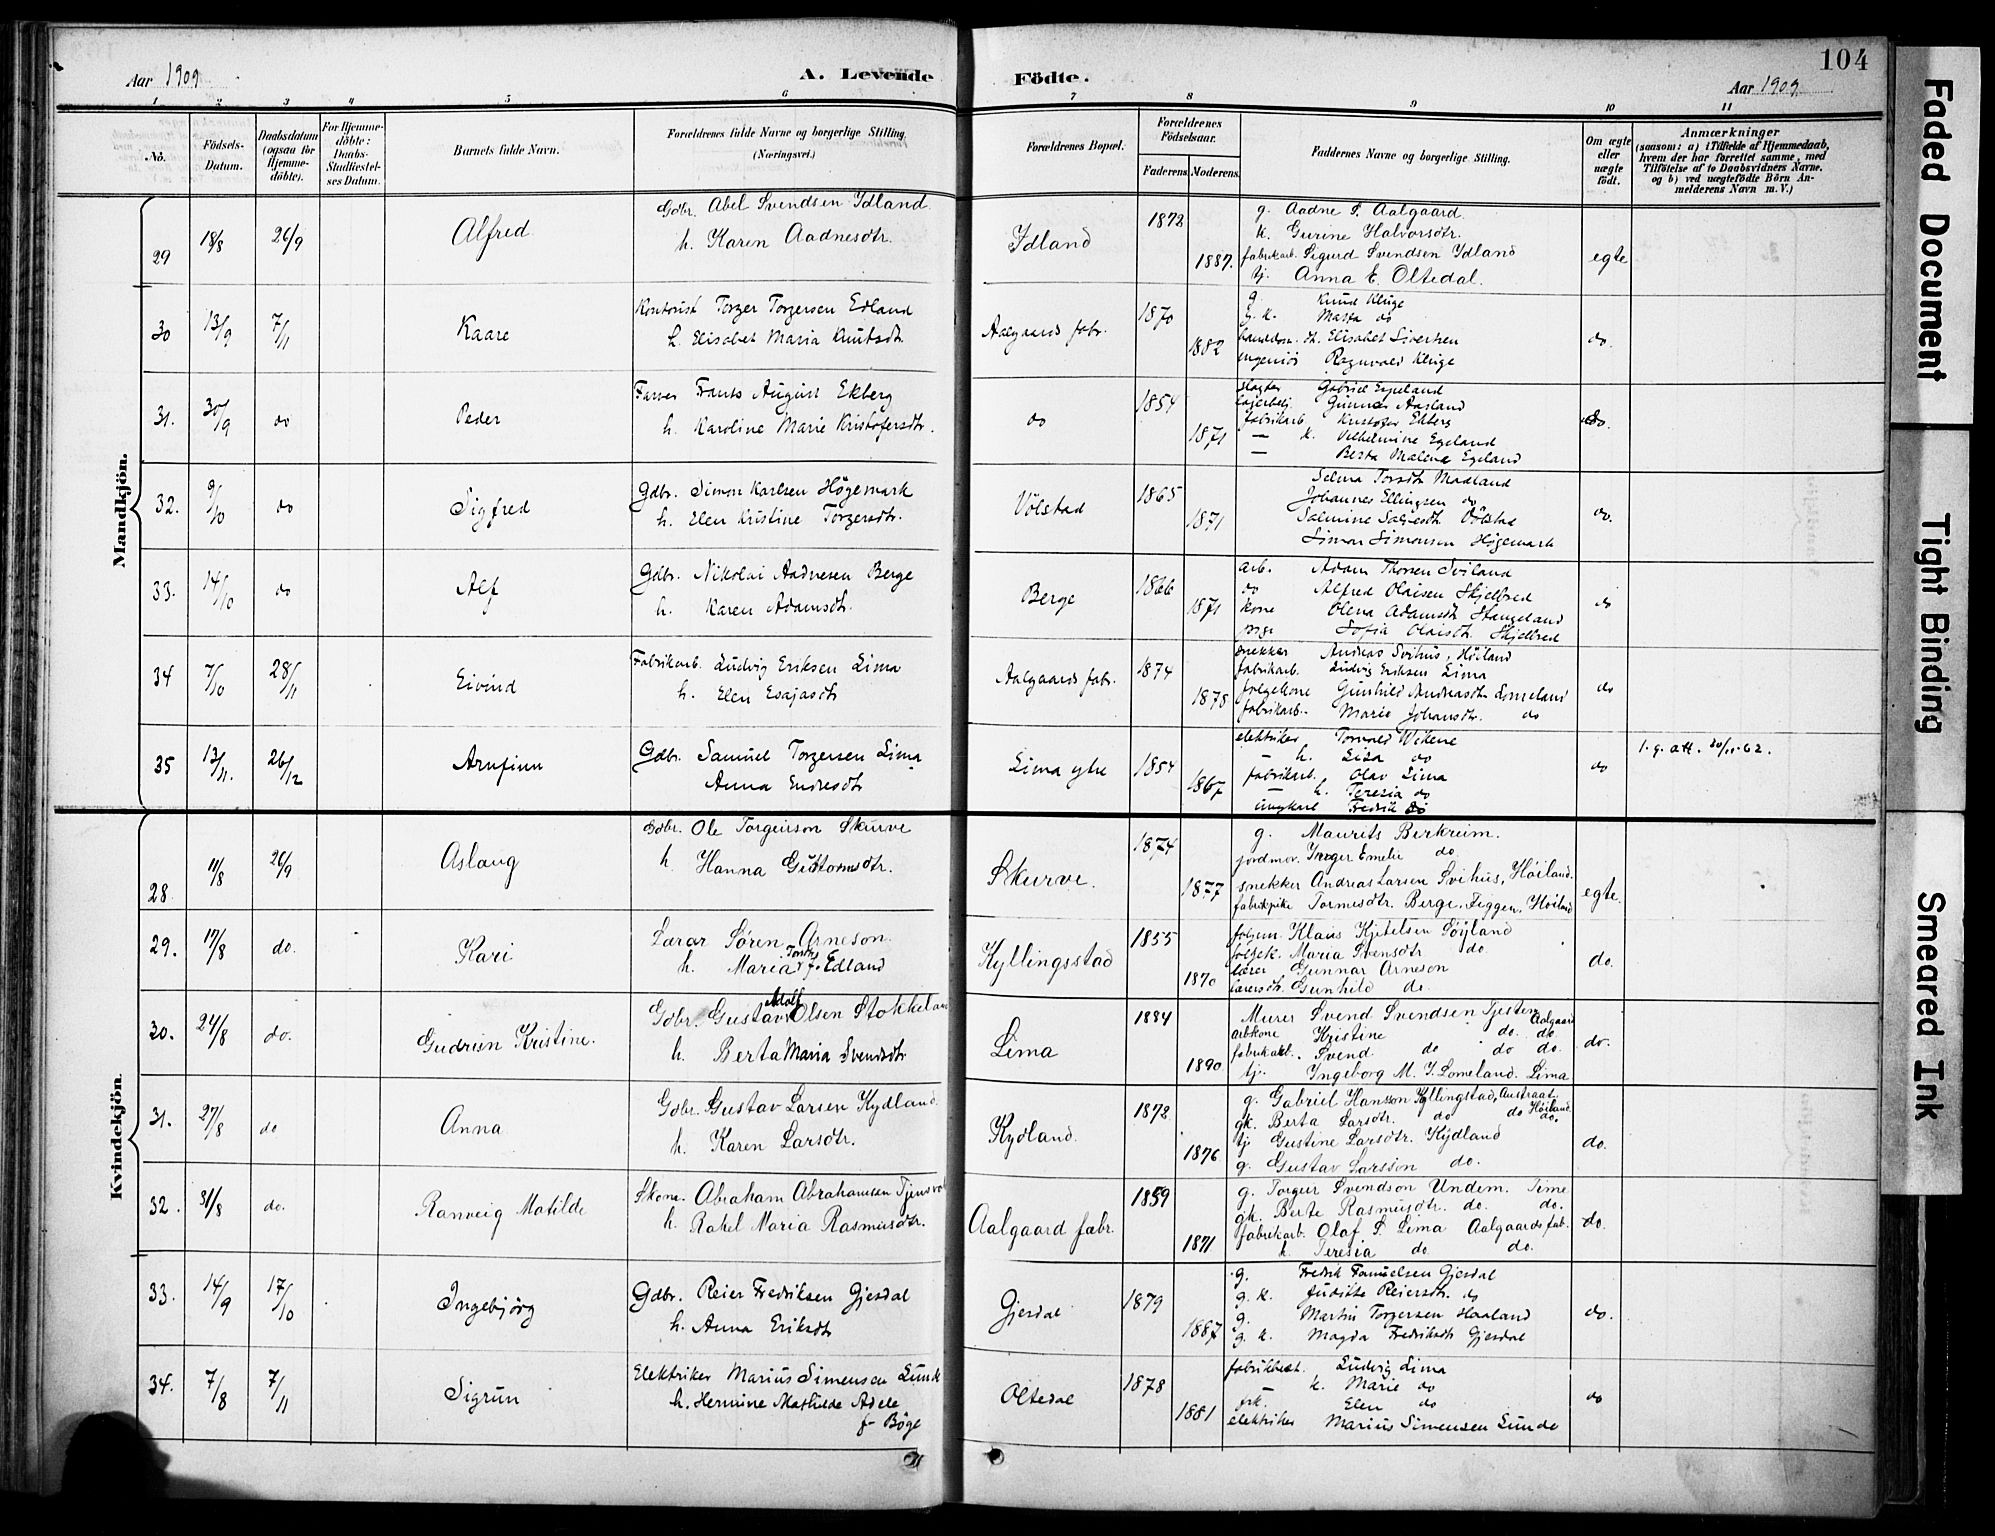 104
Aar 1909
A. Levende Födte.
Aar 1909.
1 2 3 4 5 6 7 8 9 10 11
No.
Födsels-
Datum.
Daabsdatum
(ogsaa for
Hjemme-
döbte).
For Hjemme-
döbte:
Daabs-
Stadfæstel-
ses Datum.
Barnets fulde Navn.
Forældrenes fulde Navne og borgerlige Stilling.
(Næringsvei.)
Forældrenes Bopæl.
Forældrenes
Födselsaar.
Faderens. Moderens.
Faddernes Navne og borgerlige Stilling.
Om ægte
eller
uægte
födt.
Anmærkninger
(saasom: a) i Tilfælde af Hjemmedaab,
hvem der har forrettet samme, med
Tilföielse af to Daabsvidners Navne.
og b) ved uægtefödte Börn An-
melderens Navn m. V.)
Mandkjön.
29 18/8 26/9 Alfred
Gdbr. Abel Svendsen Ydland
h. Karen Aadnesdtr.
Ydland 1872 1887.
g. Aadne S. Aalgaard
k. Gurine Halvorsdtr.
fabrikarb. Sigurd Svendsen Ydland
tj. Anna E. Oltedal.
egte
30 13/9 7/11 Kaare
Kontorist Torger Torgersen Edland
h. Elisabet Maria Knutsdtr
Aalgaards fabr. 1870 1882
g. Knud Kluge
g. k. Marta do
Elisabet Sivertsen
ingeniör Ragnvald Kluge
do.
31. 30/9 do Peder
Farver Frants August Ekberg
h. Karoline Marie Kristofersdtr.
do 1854 1871
slagter Gabriel Egeland
Gunner Aasland
fabrikarb. Kristofer Ekberg
— k. Vilhelmine Egeland
— Berta Malene Egeland
do.
32. 9/10 do Sigfred
Gdbr. Simon Karlsen Högemark
h. Elen Kristine Torgersdtr.
Völstad 1865 1871
Selma Torsdtr Madland
Johannes Ellingsen do
Salmine Salvesdtr Völstad
Simon Simonsen Högemark
do.
33. 14/10 do Alf
Gdbr. Nikolai Aadnesen Berge
h. Karen Adamsdtr.
Berge 1866 1871
arb. Adam Thorsen Sviland
do Alfred Olaisen Skjelbred
kone Olena Adamsdtr Stangeland
pige Sofia Olaisdtr. Skjelbred
do
34 7/10 28/11 Eivind
Fabrikarb. Ludvig Eriksen Lima
h. Elen Esajasdtr
Aalgaards fabr. 1874 1878
snekker Andreas Svihus, Höiland
fabrikarb. Ludvig Eriksen Lima
folgekone Gunhild Andreasdtr Lomeland
fabrikarb. Marie Johansdtr. do
do
35 13/11. 26/12 Arnfinn
Gdbr. Samuel Torgersen Lima
Anna Endresdtr
Lima ytre 1854 1867
elektriker Torvald Wikene
— h. Lisa do
fabrikarb. Olav Lima
— h. Teresia do
ungkarl Fredrik do
do
l. g. att. 20/11-62.
Kvindekjön.
28. 11/8 26/9 Aslaug
Gdbr. Ole Torgeirson Skurve
h. Hanna Guttormsdtr.
Skurve. 1874 1877
g. Maurits Berkreim.
jordmor. Inger Emelie do
snekker Andreas Larsen Svihus, Höiland.
fabrikpike Tormesdtr. Berge, Figgen, Höiland
egte.
29. 17/8 do. Kari
Lærar Sören Arneson
h. Maria Torsdtr f. Edland
Kyllingsstad 1855 1870
folgem. Klaus Kjetelsen Söyland
folgek. Maria Svensdtr do.
lærer Gunnar Arneson
lærersdtr. Gunhild do.
do.
30. 24/8 do. Gudrun Kristine.
Gdbr. Gustav Adolf Olsen Stokkeland
h. Berta Maria Svendsdtr
Lima 1884 1890
Murer Svend Svendsen Tjesten Aalgaard
arbkone Kristine do. do
fabrikarb. Svend do do do.
tj. Ingeborg M. J. Lomeland. Lima
do.
31. 27/8 do Anna
Gdbr. Gustav Larsen Kydland
h. Karen Larsdtr.
Kydland. 1872 1876
g. Gabriel Hansson Kyllingstad, Austraat Höiland.
gk. Berta Larsdtr. do do do.
tj. Gustine Larsdtr. Kydland
g. Gustav Larsson do.
do.
32. 31/8 do. Ranveig Matilde
Skom. Abraham Abrahamsen
h. Rakel Maria Rasmusdtr.
Aalgaard fabr. 1859 1871
g. Torgeir Svendson Undem. Time
gk. Berte Rasmusdtr. do. do.
fabrikarb. Olaf S. Lima Aalgaards fab.
h. Teresia do do.
do.
33. 14/9 17/10 Ingebjörg
Gdbr. Reier Fredriksen Gjesdal
h. Anna Eriksdtr
Gjesdal 1879 1887
g. Fredrik Gjesdal
g. k. Juditte Reiersdtr. do
g. Martin Torgersen Haaland
g. k. Magda Fredriksdtr Gjesdal
do.
34. 7/8 7/11 Sigrun
Elektriker Marius Simensen Lunde
h. Hermine Mathilde Adele
f. Böge
Oltedal 1878 1881
Ludvig Lima
— k. Marie do
frk. Elen do
elektriker Marius Simensen Lunde
do
Faded Document
Tight Binding
Smeared Ink